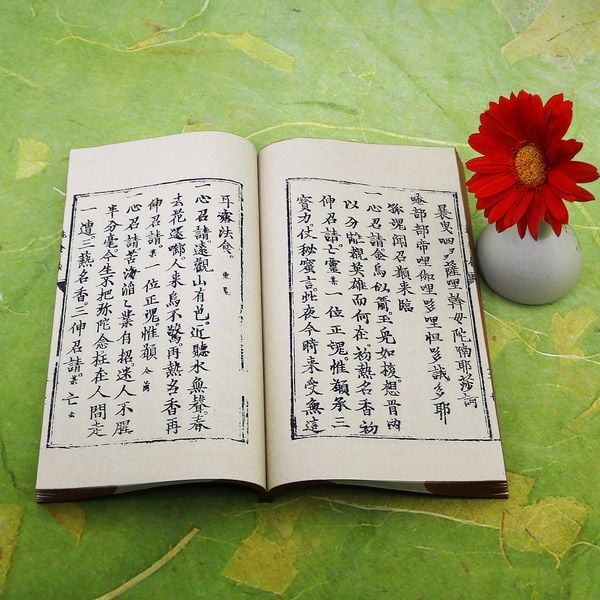 曩謨㘕𠺁薩哩斡毋陀喃耶莎訶
唵部部帝哩伽哩哆哩怛哆誐哆耶
孤魂聞召願來臨
一心召請金烏似箭。玉兔如梭。想晋兩
以分離。覩英雄而何在。初熱名香初
伸召請。亡靈 一位正魂。惟願承三
寶力仗秘蜜言。此夜今時來受無遮
耳齋法食。
一心召請遠觀山有色。近聽水無聲春
去花還啣。人來鳥不驚。再熱名香再
伸召請。一位正魂。惟願
一心召請苦海滔滔業自招迷人不醒
半分毫。今生不把弥陀念枉在人間走
一遭三熱名香。三伸召請。亡